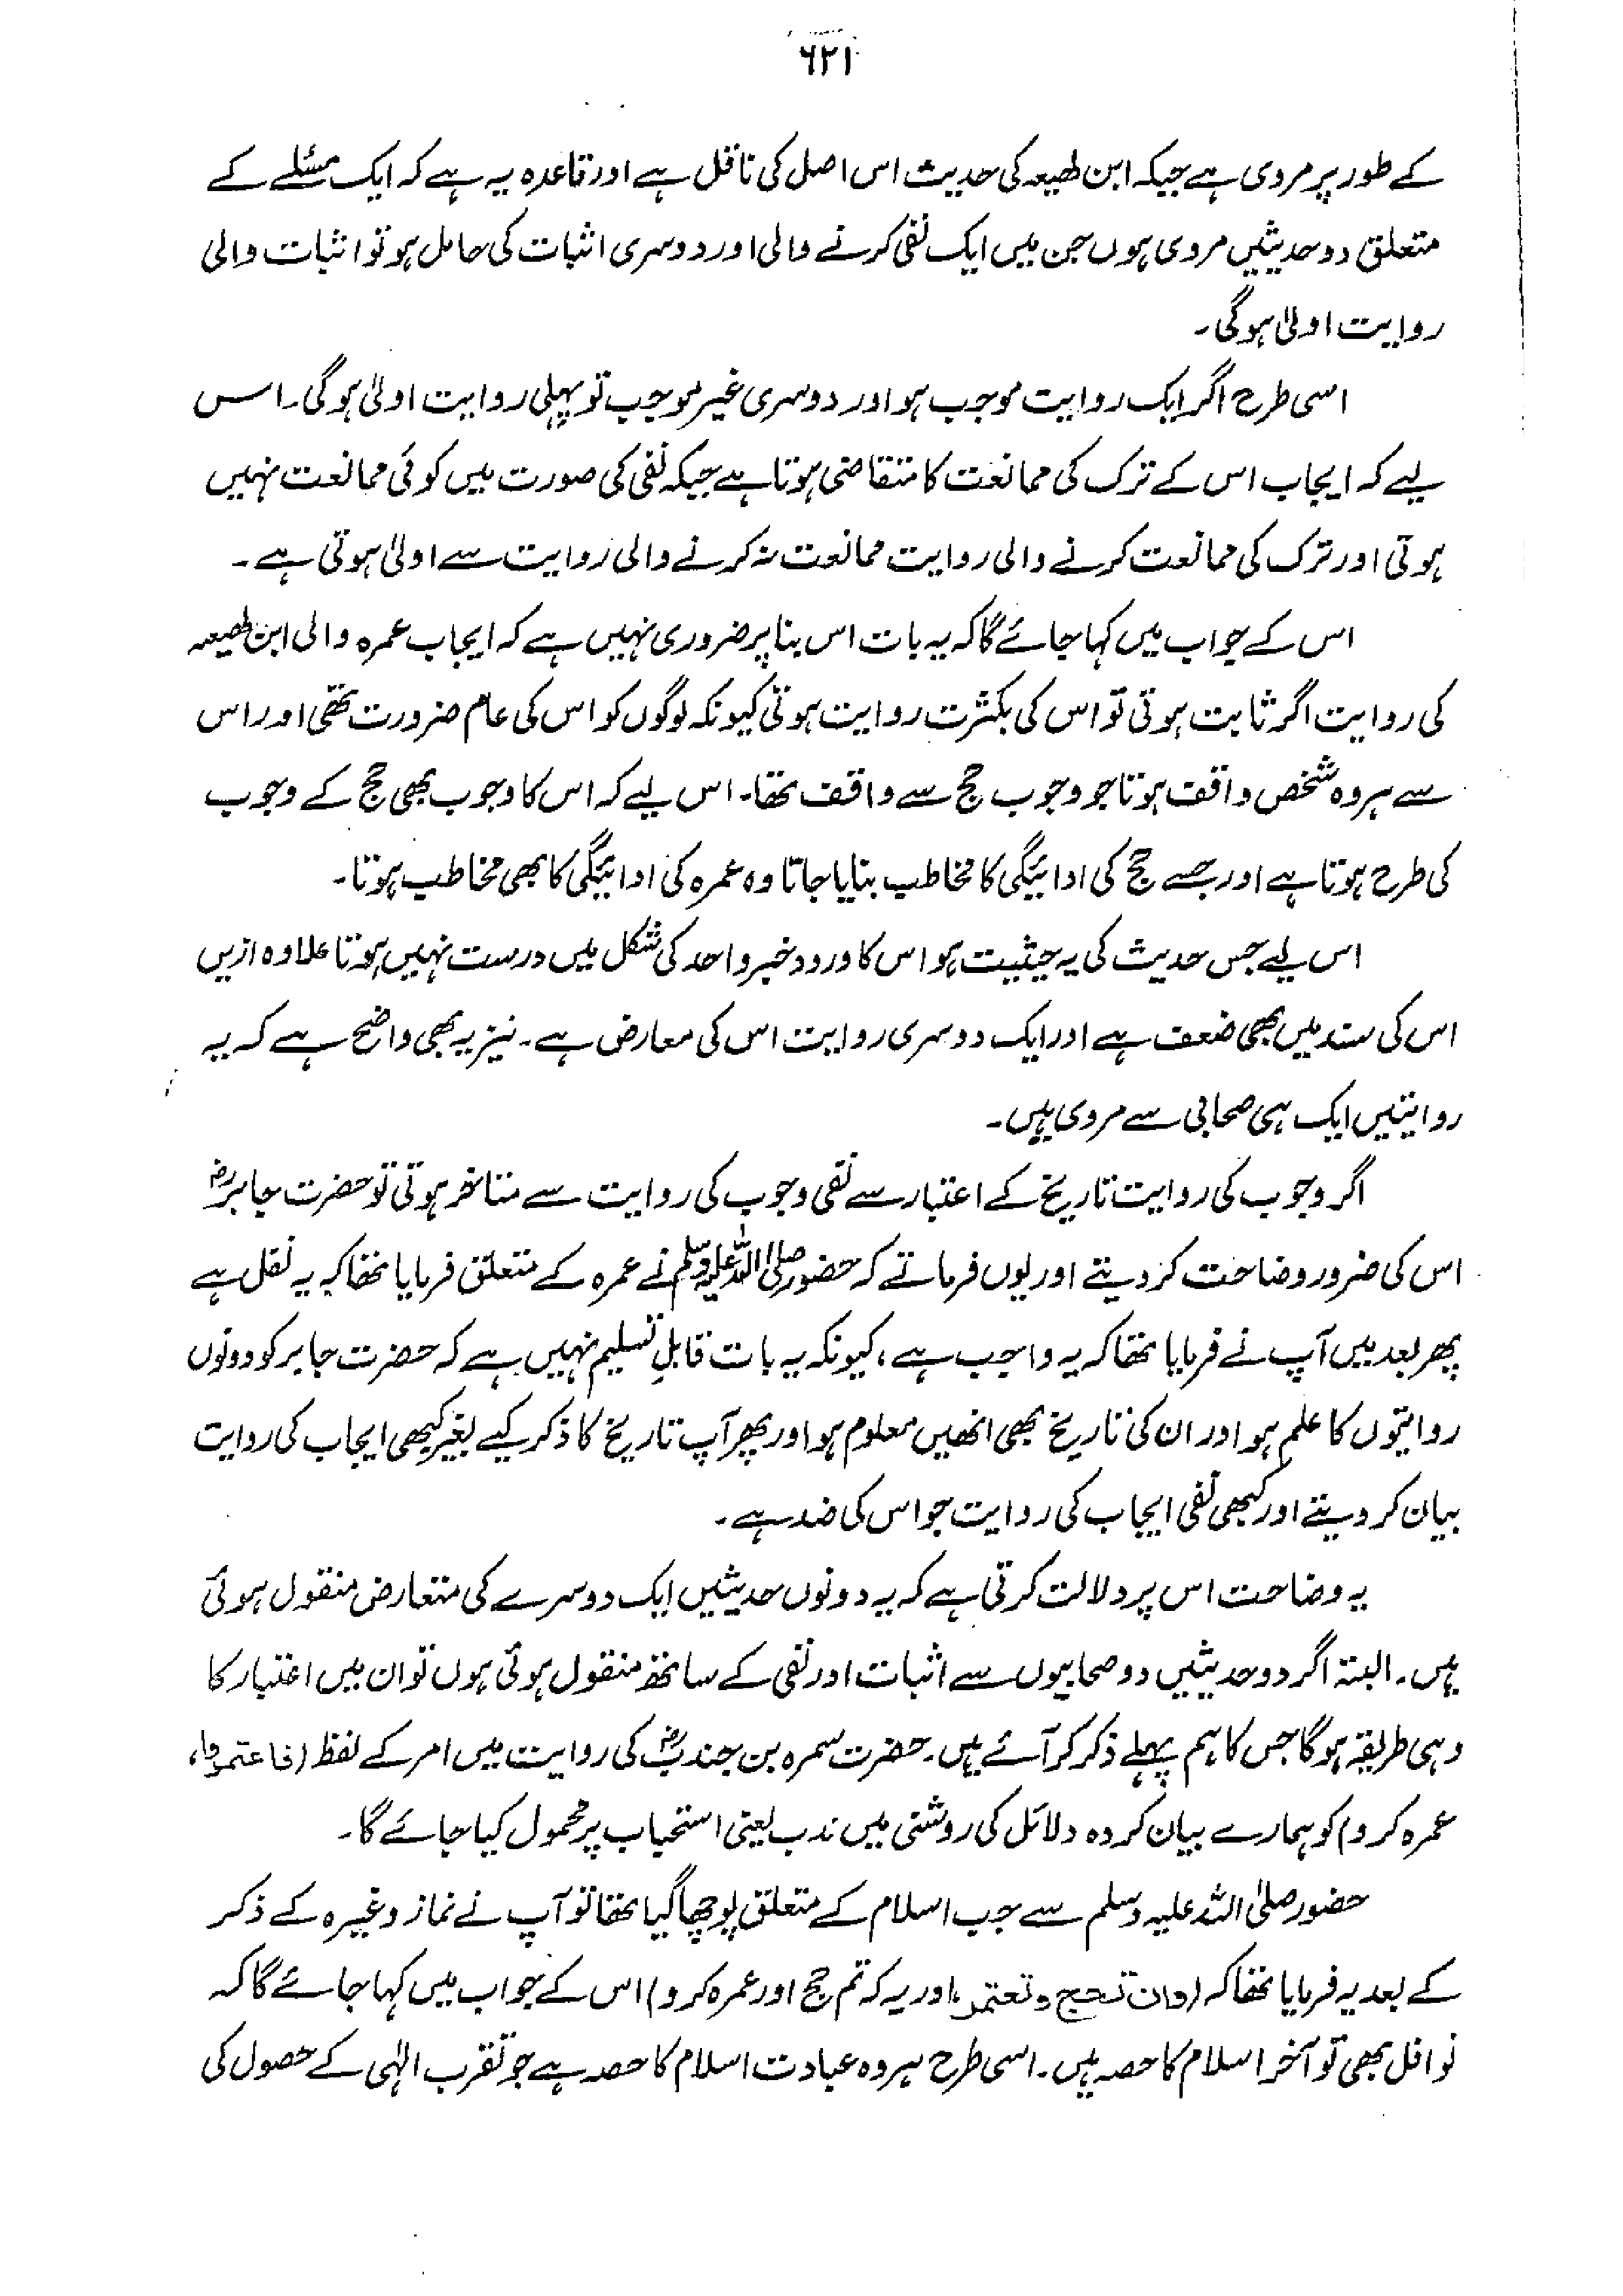 ۶۲۱
کے طور پر مروی ہے جبکہ ابن لھیعہ کی حدیث اس اصل کی ناقل ہے اور قاعدہ یہ ہے کہ ایک مسئلے کے
متعلق دو حدیثیں مروی ہوں جن میں ایک نفی کرنے والی اور دوسری اثبات کی حامل ہو تو اثبات والی
روایت اولیٰ ہوگی۔
اسی طرح اگر ایک روایت موجب ہو اور دوسری غیر موجب تو پہلی روایت اولیٰ ہوگی۔ اس
لیے کہ ایجاب اس کے ترک کی ممانعت کا متقاضی ہوتا ہے جبکہ نفی کی صورت میں کوئی ممانعت نہیں
ہوتی اور ترک کی ممانعت کرنے والی روایت ممانعت نہ کرنے والی روایت سے اولیٰ ہوتی ہے۔
اس کے جواب میں کہا جائے گا کہ یہ بات اس بنا پر ضروری نہیں ہے کہ ایجاب عمرہ والی ابن لھیعہ
کی روایت اگر ثابت ہوتی تو اس کی بکثرت روایت ہوتی کیونکہ لوگوں کو اس کی عام ضرورت تھی اور اس
سے ہر وہ شخص واقف ہوتا جو وجوب حج سے واقف تھا۔ اس لیے کہ اس کا وجوب بھی حج کے وجوب
کی طرح ہوتا ہے اور جسے حج کی ادائیگی کا مخاطب بنایا جاتا وہ عمرہ کی ادائیگی کا بھی مخاطب ہوتا۔
اس لیے جس حدیث کی یہ حیثیت ہو اس کا ورود خبر واحد کی شکل میں درست نہیں ہوتا علاوہ ازیں
اس کی سند میں بھی ضعف ہے اور ایک دوسری روایت اس کی معارض ہے۔ نیز یہ بھی واضح ہے کہ یہ
روایتیں ایک ہی صحابی سے مروی ہیں۔
اگر وجوب کی روایت تاریخ کے اعتبار سے نفی وجوب کی روایت سے متاخر ہوتی تو حضرت جابرؓ
اس کی ضرور وضاحت کر دیتے اور یوں فرماتے کہ حضور صلی اللہ علیہ وسلم نے عمرہ کے متعلق فرمایا تھا کہ یہ نفل ہے
پھر بعد میں آپ نے فرمایا تھا کہ یہ واجب ہے، کیونکہ یہ بات قابلِ تسلیم نہیں ہے کہ حضرت جابر کو دونوں
روایتوں کا علم ہو اور ان کی تاریخ بھی انھیں معلوم ہو اور پھر آپ تاریخ کا ذکر کیے بغیر کبھی ایجاب کی روایت
بیان کر دیتے اور کبھی نفی ایجاب کی روایت جو اس کی ضد ہے۔
یہ وضاحت اس پر دلالت کرتی ہے کہ یہ دونوں حدیثیں ایک دوسرے کی متعارض منقول ہوئی
ہیں۔ البتہ اگر دو حدیثیں دو صحابیوں سے اثبات اور نفی کے ساتھ منقول ہوئی ہوں تو ان میں اعتبار کا
وہی طریقہ ہوگا جس کا ہم پہلے ذکر کر آئے ہیں۔ حضرت سمرہ بن جندبؓ کی روایت میں امر کے لفظ (فاعتمروا،
عمرہ کرو) کو ہمارے بیان کردہ دلائل کی روشنی میں ندب یعنی استحباب پر محمول کیا جائے گا۔
حضور صلی اللہ علیہ وسلم سے جب اسلام کے متعلق پوچھا گیا تھا تو آپ نے نماز وغیرہ کے ذکر
کے بعد یہ فرمایا تھا کہ (وان تحج وتعتمر، اور یہ کہ تم حج اور عمرہ کرو) اس کے جواب میں کہا جائے گا کہ
نوافل بھی تو آخر اسلام کا حصہ ہیں۔ اسی طرح ہر وہ عبادت اسلام کا حصہ ہے جو تقرب الٰہی کے حصول کی